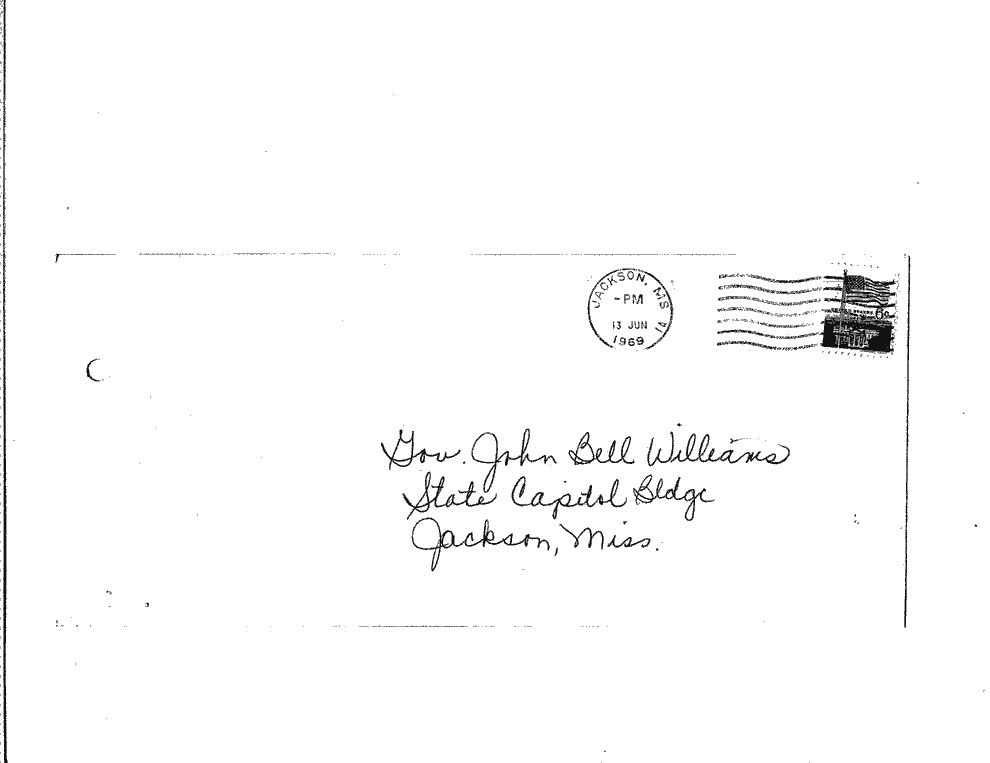 JACKSON, MS
-PM
13 JUN
1969
6c
Gov. John Bell Williams
State Capitol Bldg
Jackson, Miss.